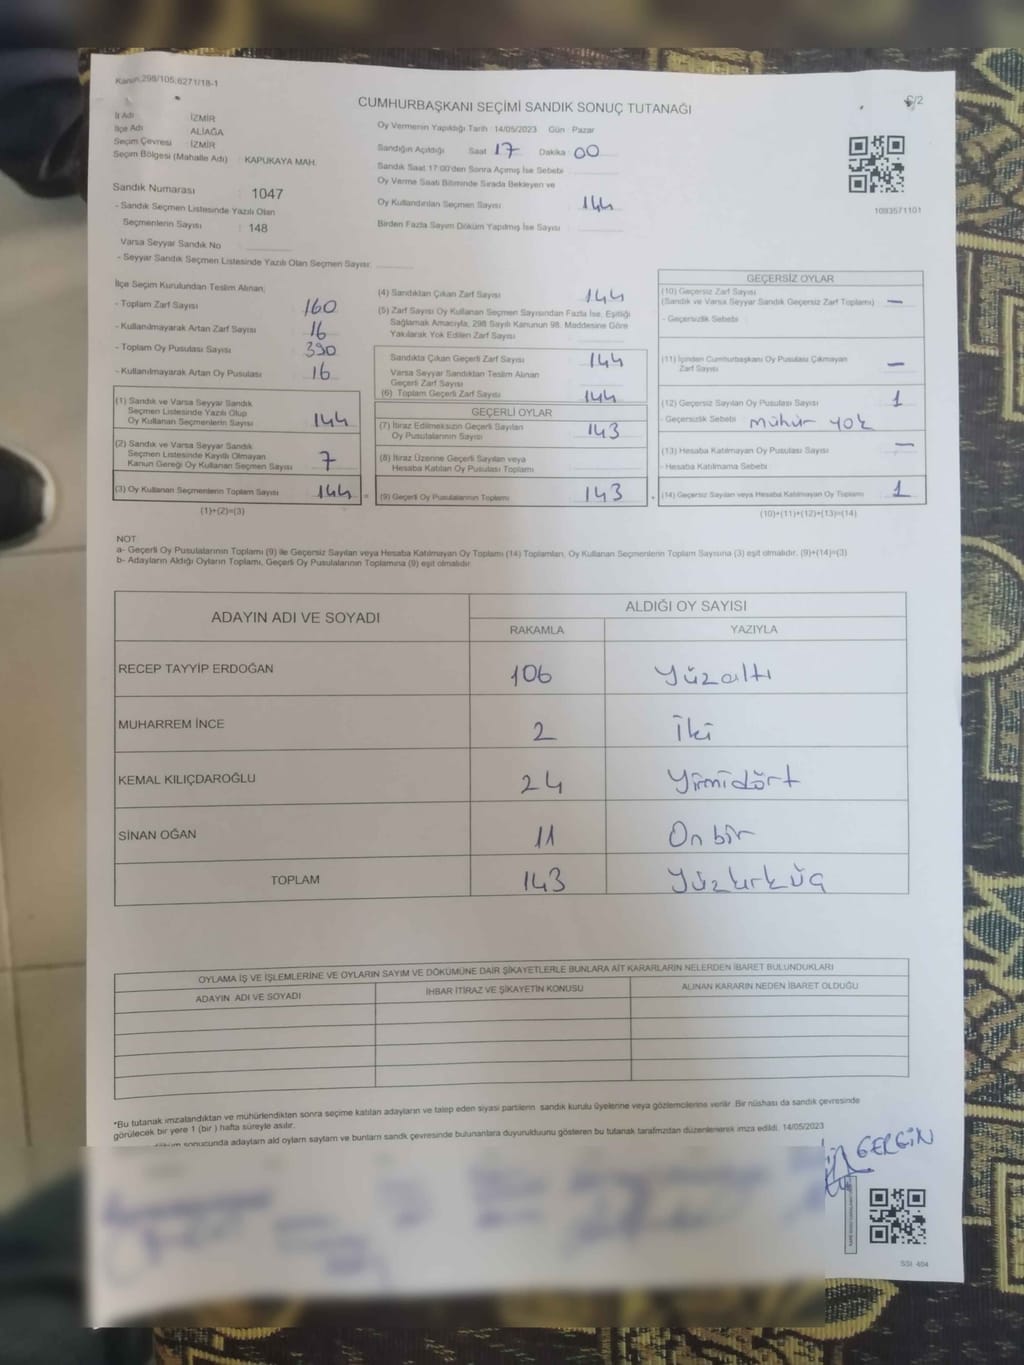 Kanun:298/105;6271/18-1
CUMHURBAŞKANI SEÇİMİ SANDIK SONUÇ TUTANAĞI
/2
İl Adı İZMİR
İlçe Adı ALİAĞA
Seçim Çevresi : İZMİR
Seçim Bölgesi (Mahalle Adı) : KAPUKAYA MAH.
Sandık Numarası : 1047
- Sandık Seçmen Listesinde Yazılı Olan
Seçmenlerin Sayısı : 148
Varsa Seyyar Sandık No
- Seyyar Sandık Seçmen Listesinde Yazılı Olan Seçmen Sayısı:
Oy Vermenin Yapıldığı Tarih : 14/05/2023 Gün : Pazar
Sandığın Açıldığı Saat : 17 Dakika : 00
Sandık Saat 17:00'den Sonra Açılmış İse Sebebi
Oy Verme Saati Bitiminde Sırada Bekleyen ve
Oy Kullandırılan Seçmen Sayısı 144
Birden Fazla Sayım Döküm Yapılmış İse Sayısı
1093571101
İlçe Seçim Kurulundan Teslim Alınan;
- Toplam Zarf Sayısı 160
- Kullanılmayarak Artan Zarf Sayısı 16
- Toplam Oy Pusulası Sayısı 390
- Kullanılmayarak Artan Oy Pusulası 16
(1) Sandık ve Varsa Seyyar Sandık
Seçmen Listesinde Yazılı Olup
Oy Kullanan Seçmenlerin Sayısı 144
(2) Sandık ve Varsa Seyyar Sandık
Seçmen Listesinde Kayıtlı Olmayan
Kanun Gereği Oy Kullanan Seçmen Sayısı 7
(3) Oy Kullanan Seçmenlerin Toplam Sayısı 144 =
(1)+(2)=(3)
(4) Sandıktan Çıkan Zarf Sayısı 144
(5) Zarf Sayısı Oy Kullanan Seçmen Sayısından Fazla İse, Eşitliği
Sağlamak Amacıyla, 298 Sayılı Kanunun 98. Maddesine Göre
Yakılarak Yok Edilen Zarf Sayısı
Sandıkta Çıkan Geçerli Zarf Sayısı 144
Varsa Seyyar Sandıktan Teslim Alınan
Geçerli Zarf Sayısı
(6) Toplam Geçerli Zarf Sayısı 144
GEÇERLİ OYLAR
(7) İtiraz Edilmeksizin Geçerli Sayılan
Oy Pusulalarının Sayısı 143
(8) İtiraz Üzerine Geçerli Sayılan veya
Hesaba Katılan Oy Pusulası Toplamı
(9) Geçerli Oy Pusulalarının Toplamı 143 +
GEÇERSİZ OYLAR
(10) Geçersiz Zarf Sayısı
(Sandık ve Varsa Seyyar Sandık Geçersiz Zarf Toplamı) —
- Geçersizlik Sebebi
(11) İçinden Cumhurbaşkanı Oy Pusulası Çıkmayan
Zarf Sayısı —
(12) Geçersiz Sayılan Oy Pusulası Sayısı 1
- Geçersizlik Sebebi mühür yok
(13) Hesaba Katılmayan Oy Pusulası Sayısı —
- Hesaba Katılmama Sebebi
(14) Geçersiz Sayılan veya Hesaba Katılmayan Oy Toplamı 1
(10)+(11)+(12)+(13)=(14)
NOT
a- Geçerli Oy Pusulalarının Toplamı (9) ile Geçersiz Sayılan veya Hesaba Katılmayan Oy Toplamı (14) Toplamları, Oy Kullanan Seçmenlerin Toplam Sayısına (3) eşit olmalıdır. (9)+(14)=(3)
b- Adayların Aldığı Oyların Toplamı, Geçerli Oy Pusulalarının Toplamına (9) eşit olmalıdır.
ADAYIN ADI VE SOYADI ALDIĞI OY SAYISI
RAKAMLA YAZIYLA
RECEP TAYYİP ERDOĞAN 106 Yüzaltı
MUHARREM İNCE 2 İki
KEMAL KILIÇDAROĞLU 24 Yirmidört
SİNAN OĞAN 11 On bir
TOPLAM 143 Yüzkırküç
OYLAMA İŞ VE İŞLEMLERİNE VE OYLARIN SAYIM VE DÖKÜMÜNE DAİR ŞİKAYETLERLE BUNLARA AİT KARARLARIN NELERDEN İBARET BULUNDUKLARI
ADAYIN ADI VE SOYADI İHBAR İTİRAZ VE ŞİKAYETİN KONUSU ALINAN KARARIN NEDEN İBARET OLDUĞU
*Bu tutanak imzalandıktan ve mühürlendikten sonra seçime katılan adayların ve talep eden siyasi partilerin sandık kurulu üyelerine veya gözlemcilerine verilir. Bir nüshası da sandık çevresinde
görülecek bir yere 1 (bir ) hafta süreyle asılır.
sonucunda adayların aldı oyların sayıları ve bunların sandk çevresinde bulunanlara duyurulduunu gösteren bu tutanak tarafmzdan düzenlenerek imza edildi. 14/05/2023
GERGİN
SSI 404